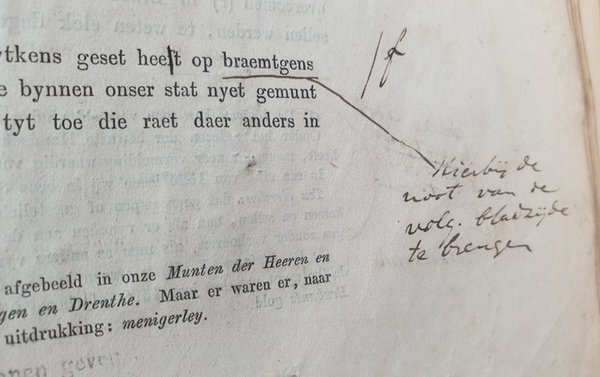 ytkens geset heeft op braemtgens
/f
e bynnen onser stat nyet gemunt
tyt toe die raet daer anders in
Hierbij de
noot van de
volg. bladzijde
te brengen
afgebeeld in onze Munten der Heeren en
gen en Drenthe. Maar er waren er, naar
uitdrukking: menigerley.